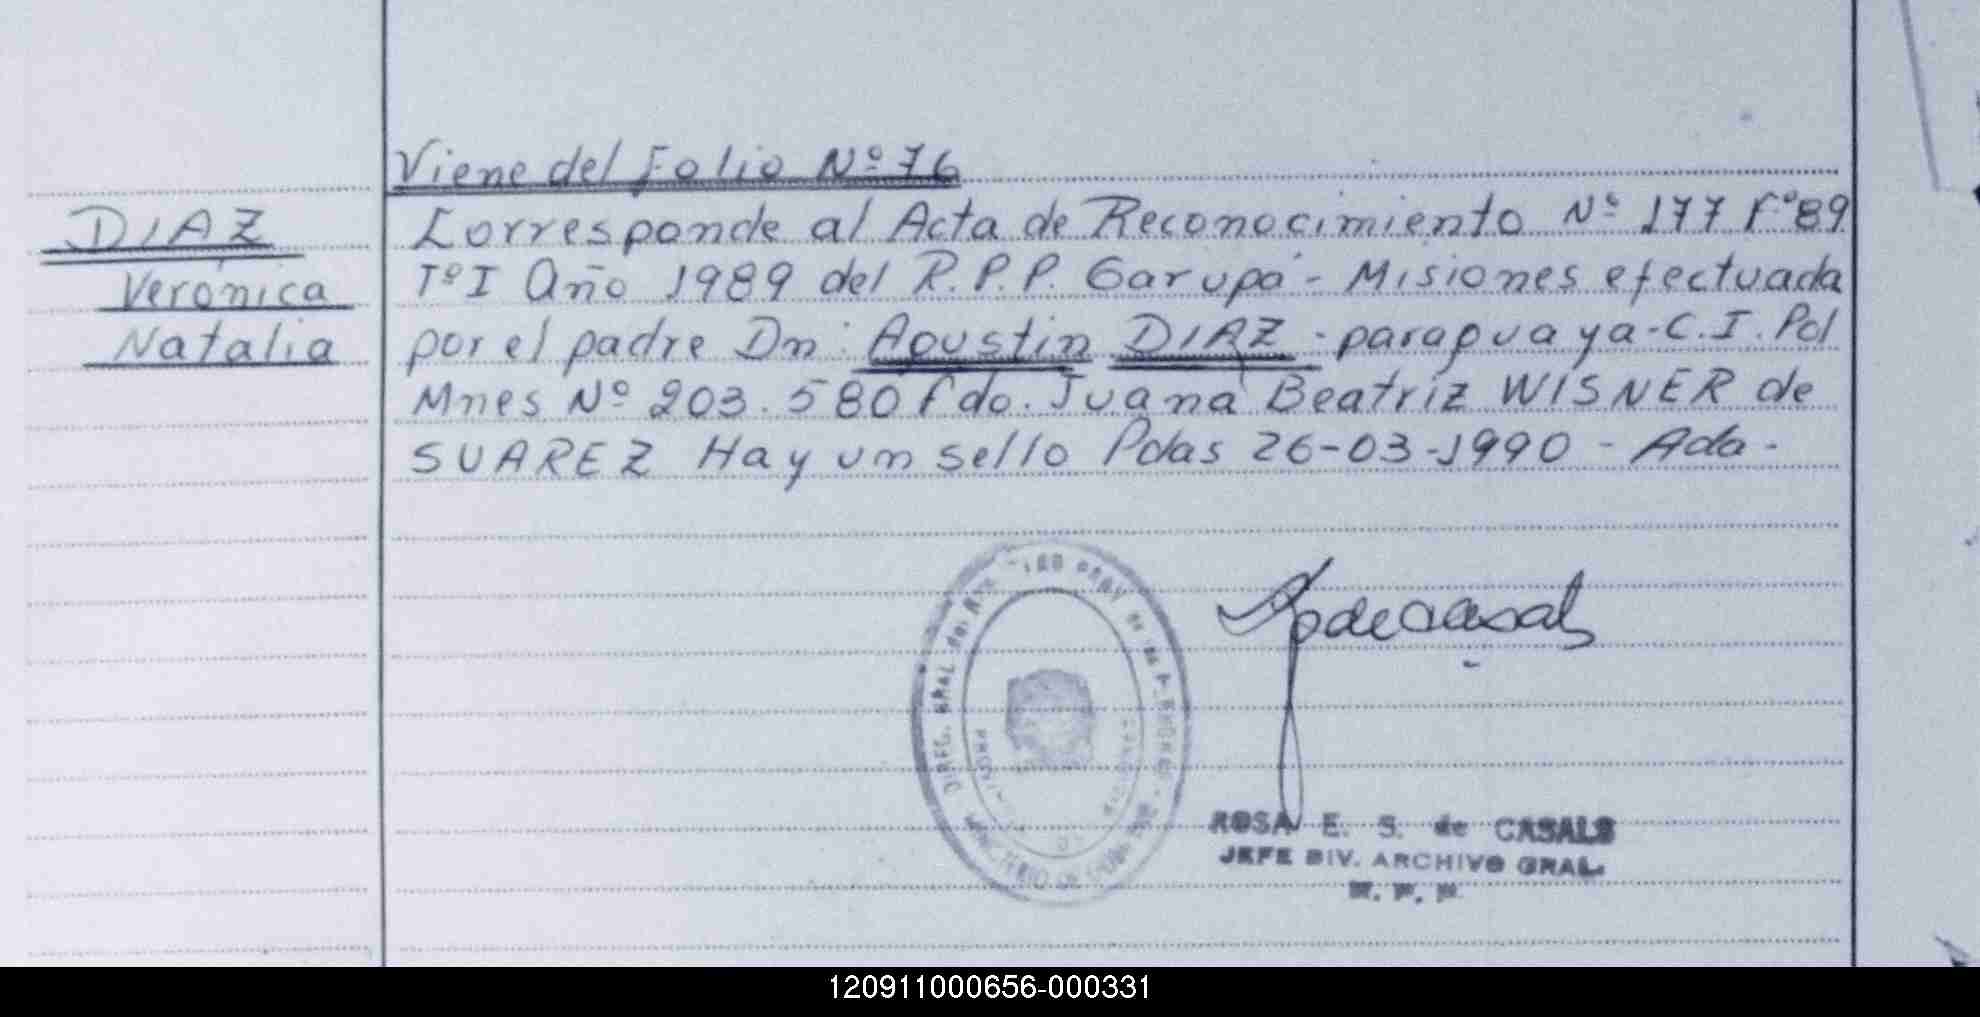 Viene del Folio Nº 76
DIAZ
Verónica
Natalia
Corresponde al Acta de Reconocimiento Nº 177 Fº 89
Tº I Año 1989 del R.P.P. Garupá - Misiones efectuada
por el padre Dn: Agustin DIAZ - paraguaya - C.I. Pol
Mnes Nº 203.580 fdo. Juana Beatriz WISNER de
SUAREZ Hay un sello Pdas 26-03-1990 - Ada -
ROSA E. S. de CASALS
JEFE DIV. ARCHIVO GRAL.
120911000656-000331